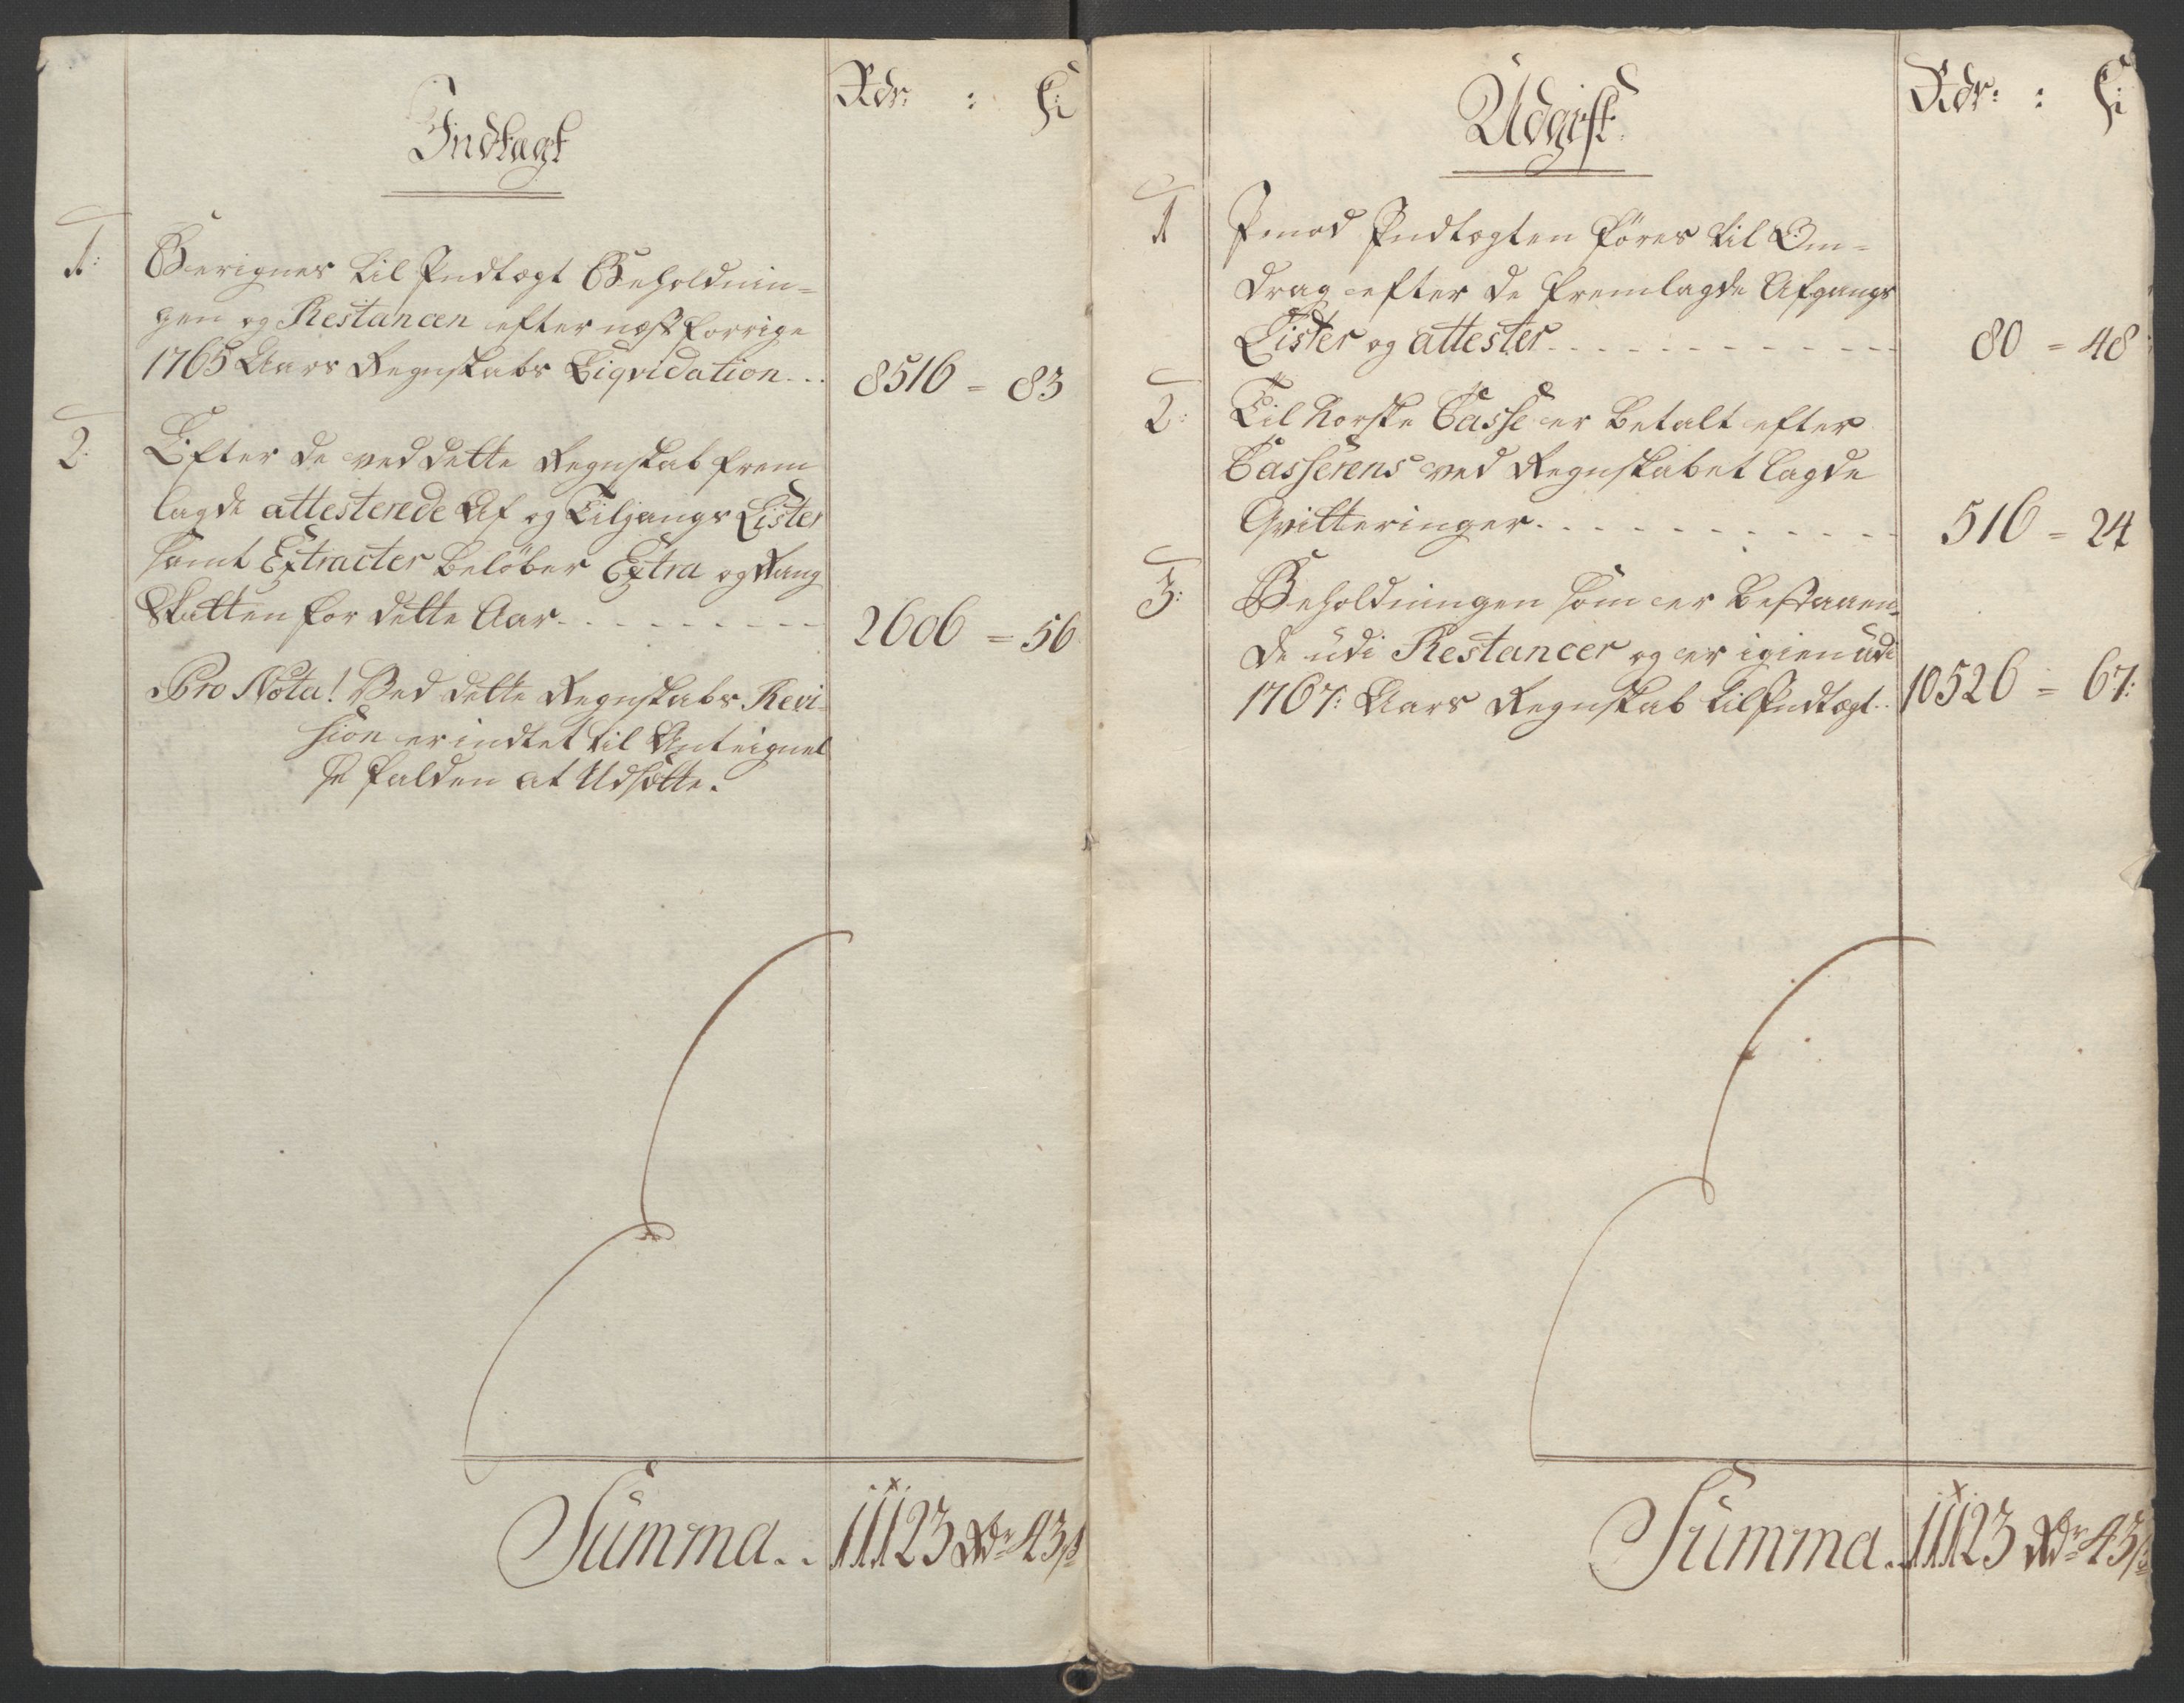 Indtægt
Rdr: : ß
1: Beregnes til Indtægt Beholdnin-
gen og Restancen efter næst forrige
1765 Aars Regnskabs Liqvidation... 8516 = 83
2: Efter de ved dette Regnskab frem
lagde attesterede Af og Tilgangs Lister
samt Extracter beløber Extra og Rang
Skatten for dette Aar - - - - - - - - 2606 = 56
Pro Nota! Ved dette Regnskabs Revi-
sion er indtet til Anteignel
se falden at Udsætte.
Summa.. 11123 Rdr 43 ß
Udgift
Rdr: : ß
1 Imod Indtægten føres til Om-
drag efter de fremlagde Afgangs
Lister og attester - - - - - - - - - - 80 = 48
2: Til Norske Casse er betalt efter
Casserens ved Regnskabet lagde
Qvitteringer - - - - - - - - - - 516 = 24
3: Beholdningen som er bestaaen-
de udi Restancer og er igien udi
1767: Aars Regnskab til Indtægt.. 10526 = 67:
Summa.. 11123 Rdr 43 ß